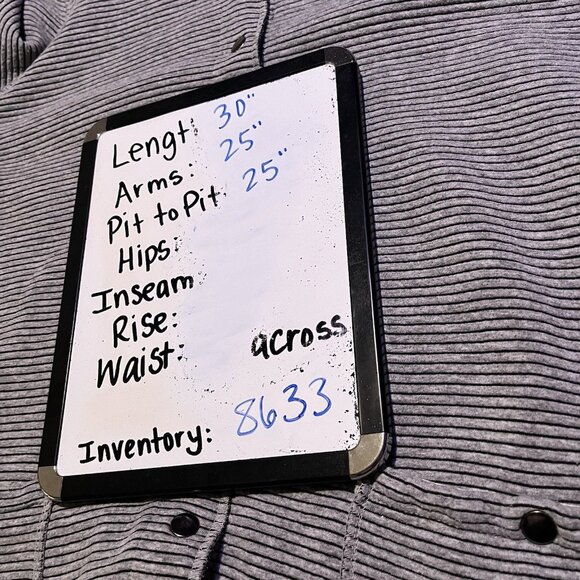 Lengt 30"
Arms: 25"
Pit to Pit 25"
Hips:
Inseam
Rise:
Waist: across
Inventory: 8633